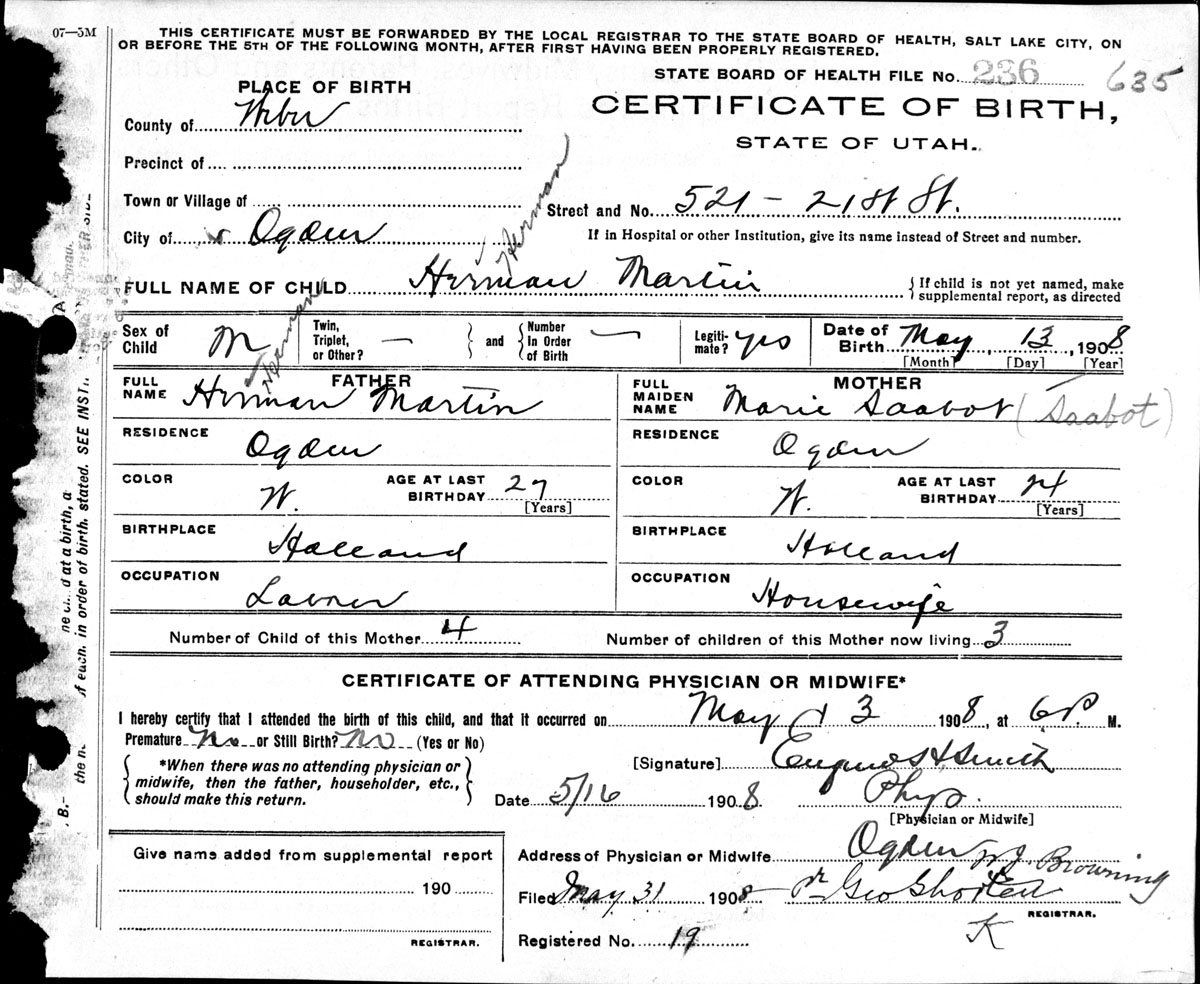 07—5M
THIS CERTIFICATE MUST BE FORWARDED BY THE LOCAL REGISTRAR TO THE STATE BOARD OF HEALTH, SALT LAKE CITY, ON
OR BEFORE THE 5TH OF THE FOLLOWING MONTH, AFTER FIRST HAVING BEEN PROPERLY REGISTERED.
STATE BOARD OF HEALTH FILE No. 236 635
PLACE OF BIRTH
CERTIFICATE OF BIRTH,
STATE OF UTAH.
County of Weber
Precinct of
Town or Village of
Street and No. 521 — 21st St.
City of Ogden
Herman
If in Hospital or other Institution, give its name instead of Street and number.
FULL NAME OF CHILD Herman Martin
{ If child is not yet named, make
supplemental report, as directed
Sex of Child M
Herman
Twin, Triplet, or Other? —
and
Number In Order of Birth —
Legiti-mate? yes
Date of Birth May, 13, 1908
[Month] [Day] [Year]
FATHER
FULL NAME Herman Martin
RESIDENCE Ogden
COLOR W.
AGE AT LAST BIRTHDAY 27
[Years]
BIRTHPLACE Holland
OCCUPATION Laborer
MOTHER
FULL MAIDEN NAME Marie Saabot (Saabot)
RESIDENCE Ogden
COLOR W.
AGE AT LAST BIRTHDAY 24
[Years]
BIRTHPLACE Holland
OCCUPATION Housewife
Number of Child of this Mother 4
Number of children of this Mother now living 3
CERTIFICATE OF ATTENDING PHYSICIAN OR MIDWIFE*
I hereby certify that I attended the birth of this child, and that it occurred on May 13 1908, at 6 P. M.
Premature No or Still Birth? No (Yes or No)
{ *When there was no attending physician or
midwife, then the father, householder, etc.,
should make this return. }
[Signature] Smith
Date 5/16 1908
Phys.
[Physician or Midwife]
Give name added from supplemental report
190
REGISTRAR.
Address of Physician or Midwife Ogden
Filed May 31 1908
Browning
Geo Shorten
REGISTRAR.
K
Registered No. 19
in order of birth, stated. SEE INST.